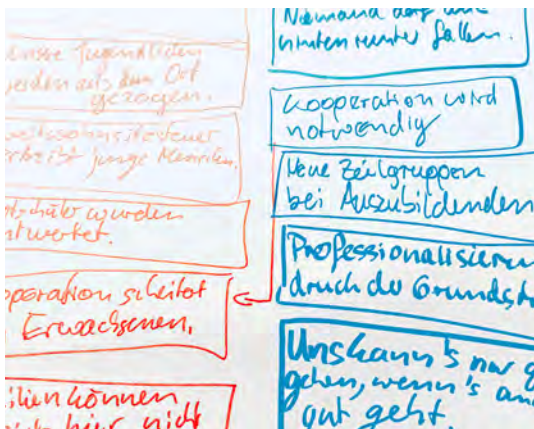 unsre Jugendlichen
werden aus dem Ort
gezogen.
junge Menschen.
wurden
ntwertet.
operation scheitert
Erwachsenen,
ilien können
hier nicht
Niemand darf
hinten runter fallen.
Kooperation wird
notwendig
Neue Zielgruppen
bei Auszubildenden
Professionalisierun
druck der Grundst
Uns kann's nur g
gehen, wenn's an
gut geht.